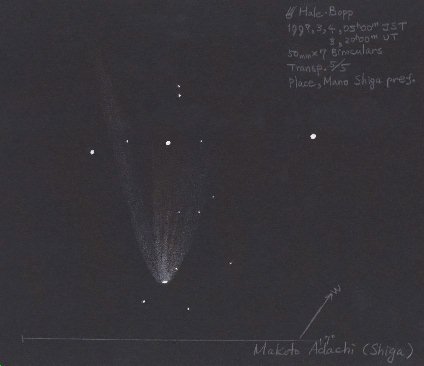 Hale-Bopp
1997, 3, 4, 05h00m JST
3, 20h00m UT
50mm×7 Binoculars
Transp. 5/5
Place, Mano Shiga pref.
N
Makoto Adachi (Shiga)